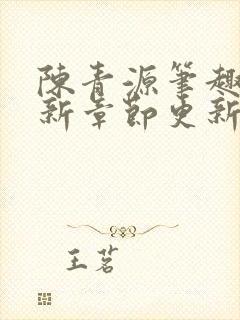 陳青源筆趣
新章節更新
王茗